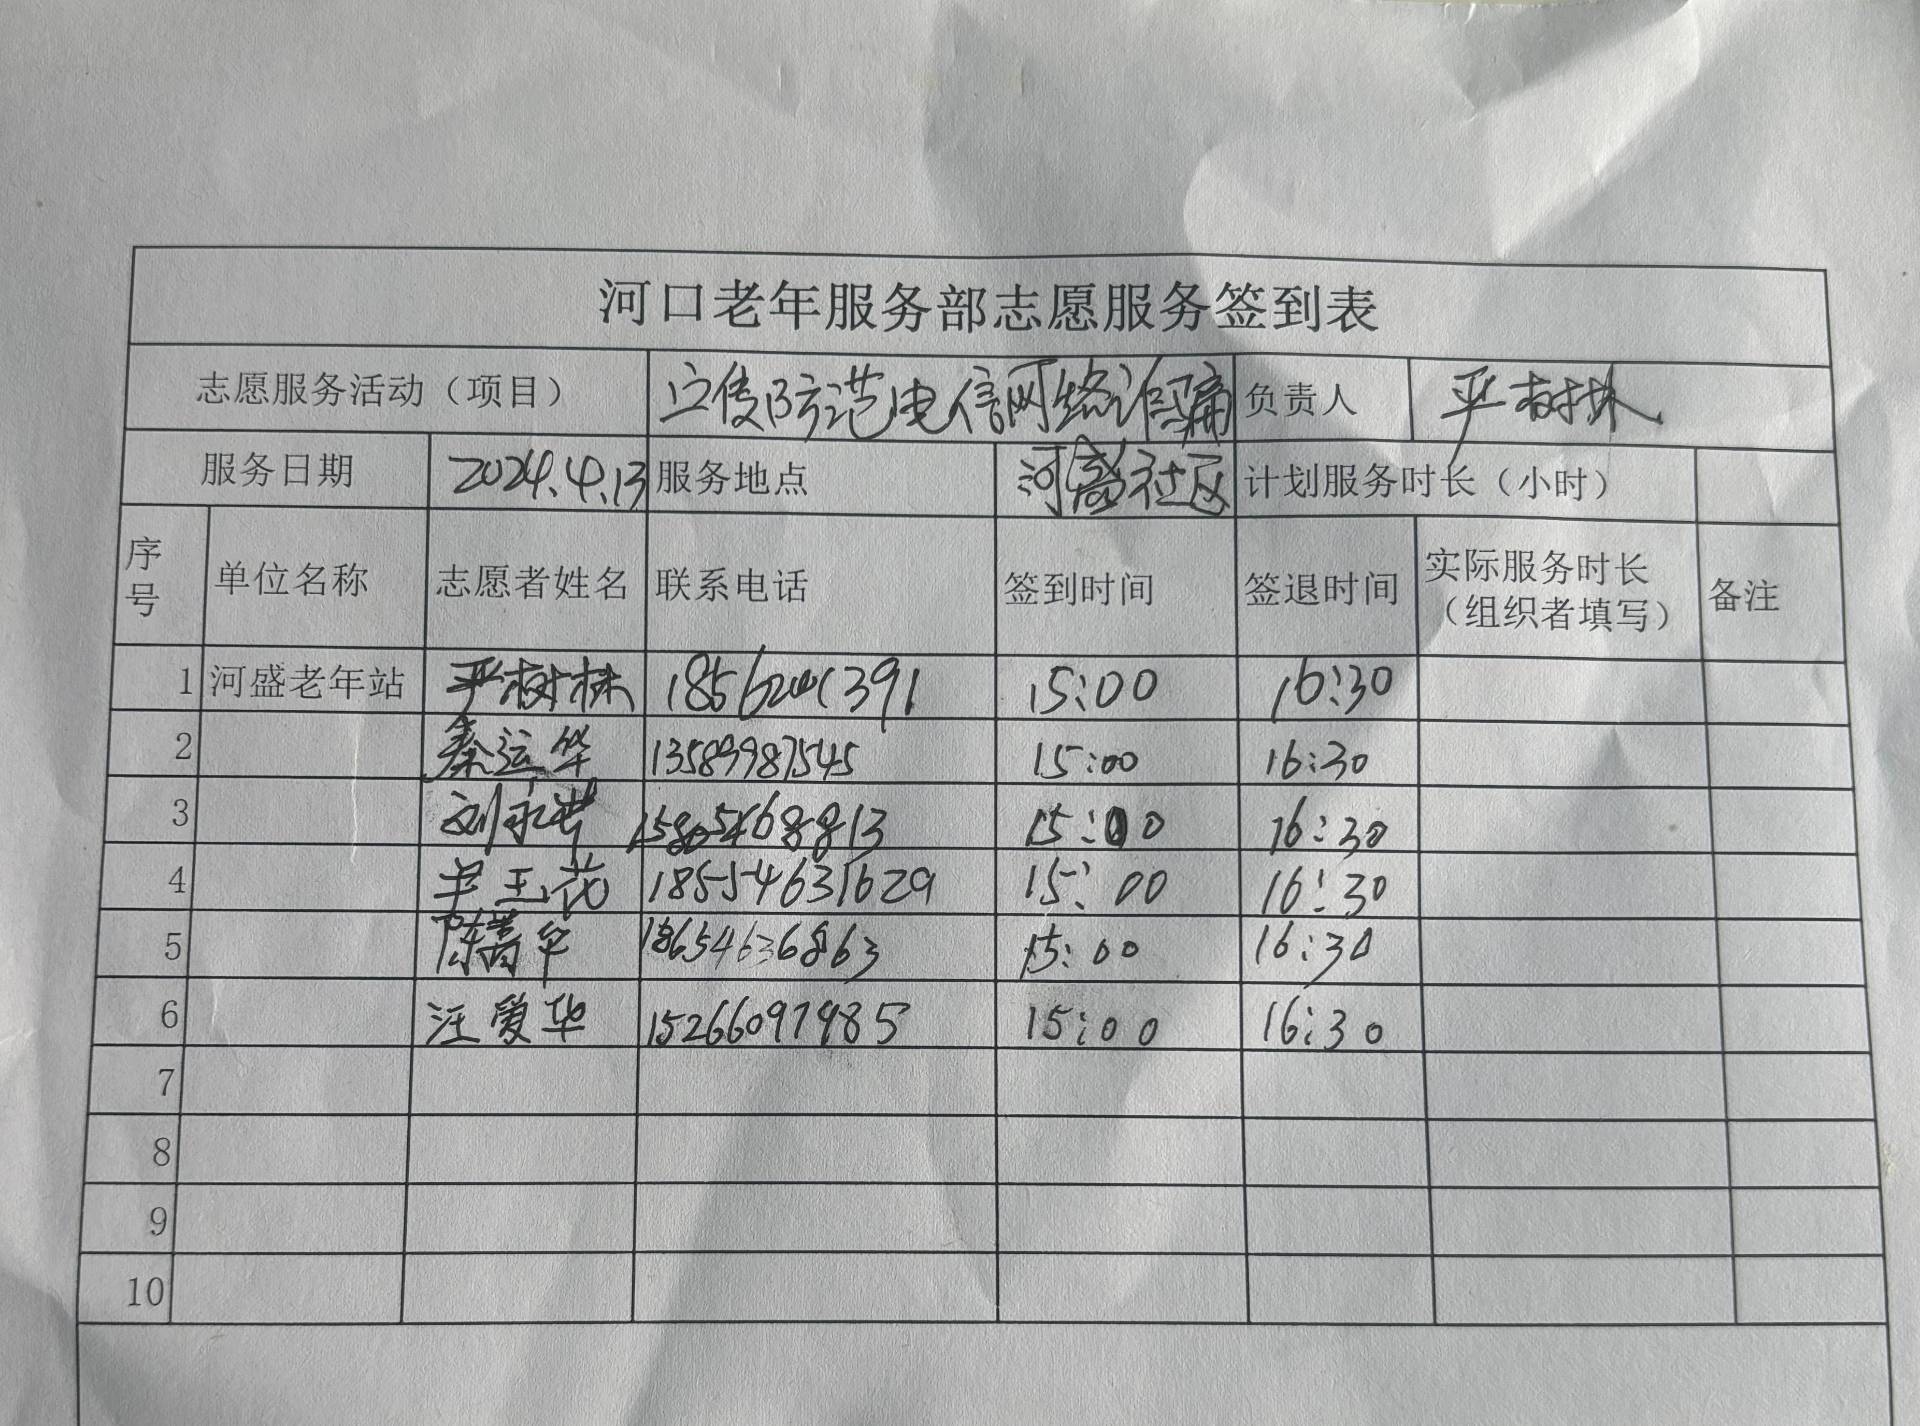 河口老年服务部志愿服务签到表
志愿服务活动（项目） 宣传防范电信网络诈骗 负责人 严树林
服务日期 2024.4.13 服务地点 河盛社区 计划服务时长（小时）
序号 单位名称 志愿者姓名 联系电话 签到时间 签退时间 实际服务时长（组织者填写） 备注
1 河盛老年站 严树林 15:00 16:30
2 秦运华 13589987545 15:00 16:30
3 15805468813 15:00 16:30
4 18554631629 15:00 16:30
5 18654636863 15:00 16:30
6 汪爱华 15266097985 15:00 16:30
7
8
9
10